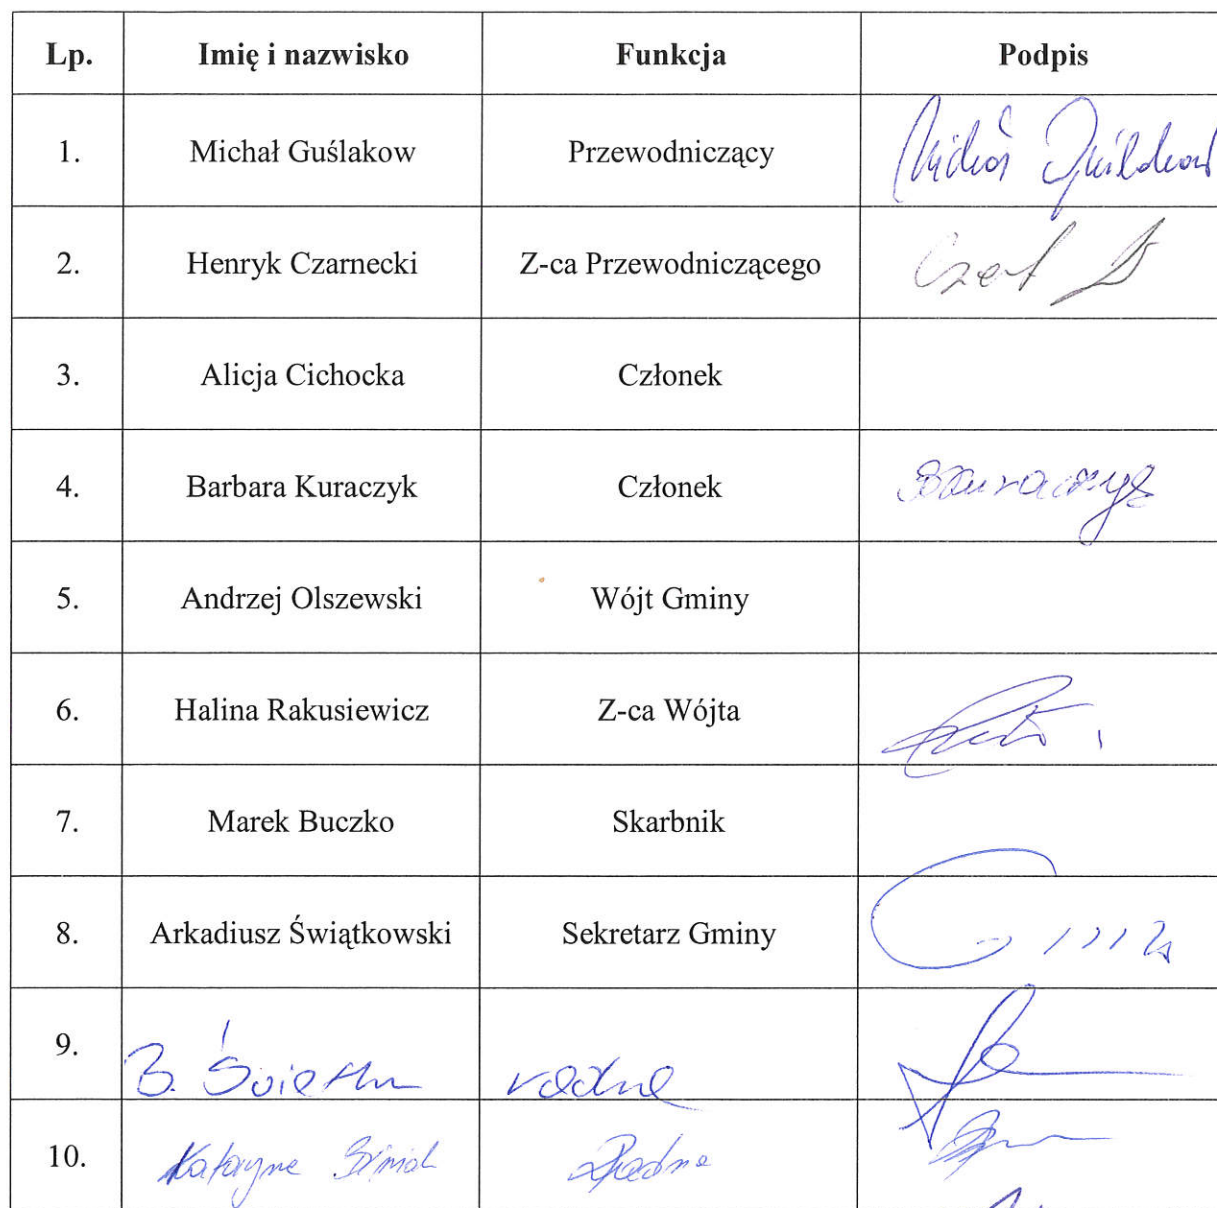 Lp. Imię i nazwisko Funkcja Podpis
1. Michał Guślakow Przewodniczący
2. Henryk Czarnecki Z-ca Przewodniczącego
3. Alicja Cichocka Członek
4. Barbara Kuraczyk Członek BKuraczyk
5. Andrzej Olszewski Wójt Gminy
6. Halina Rakusiewicz Z-ca Wójta
7. Marek Buczko Skarbnik
8. Arkadiusz Świątkowski Sekretarz Gminy
9. B. radna
10. Katarzyna Radna